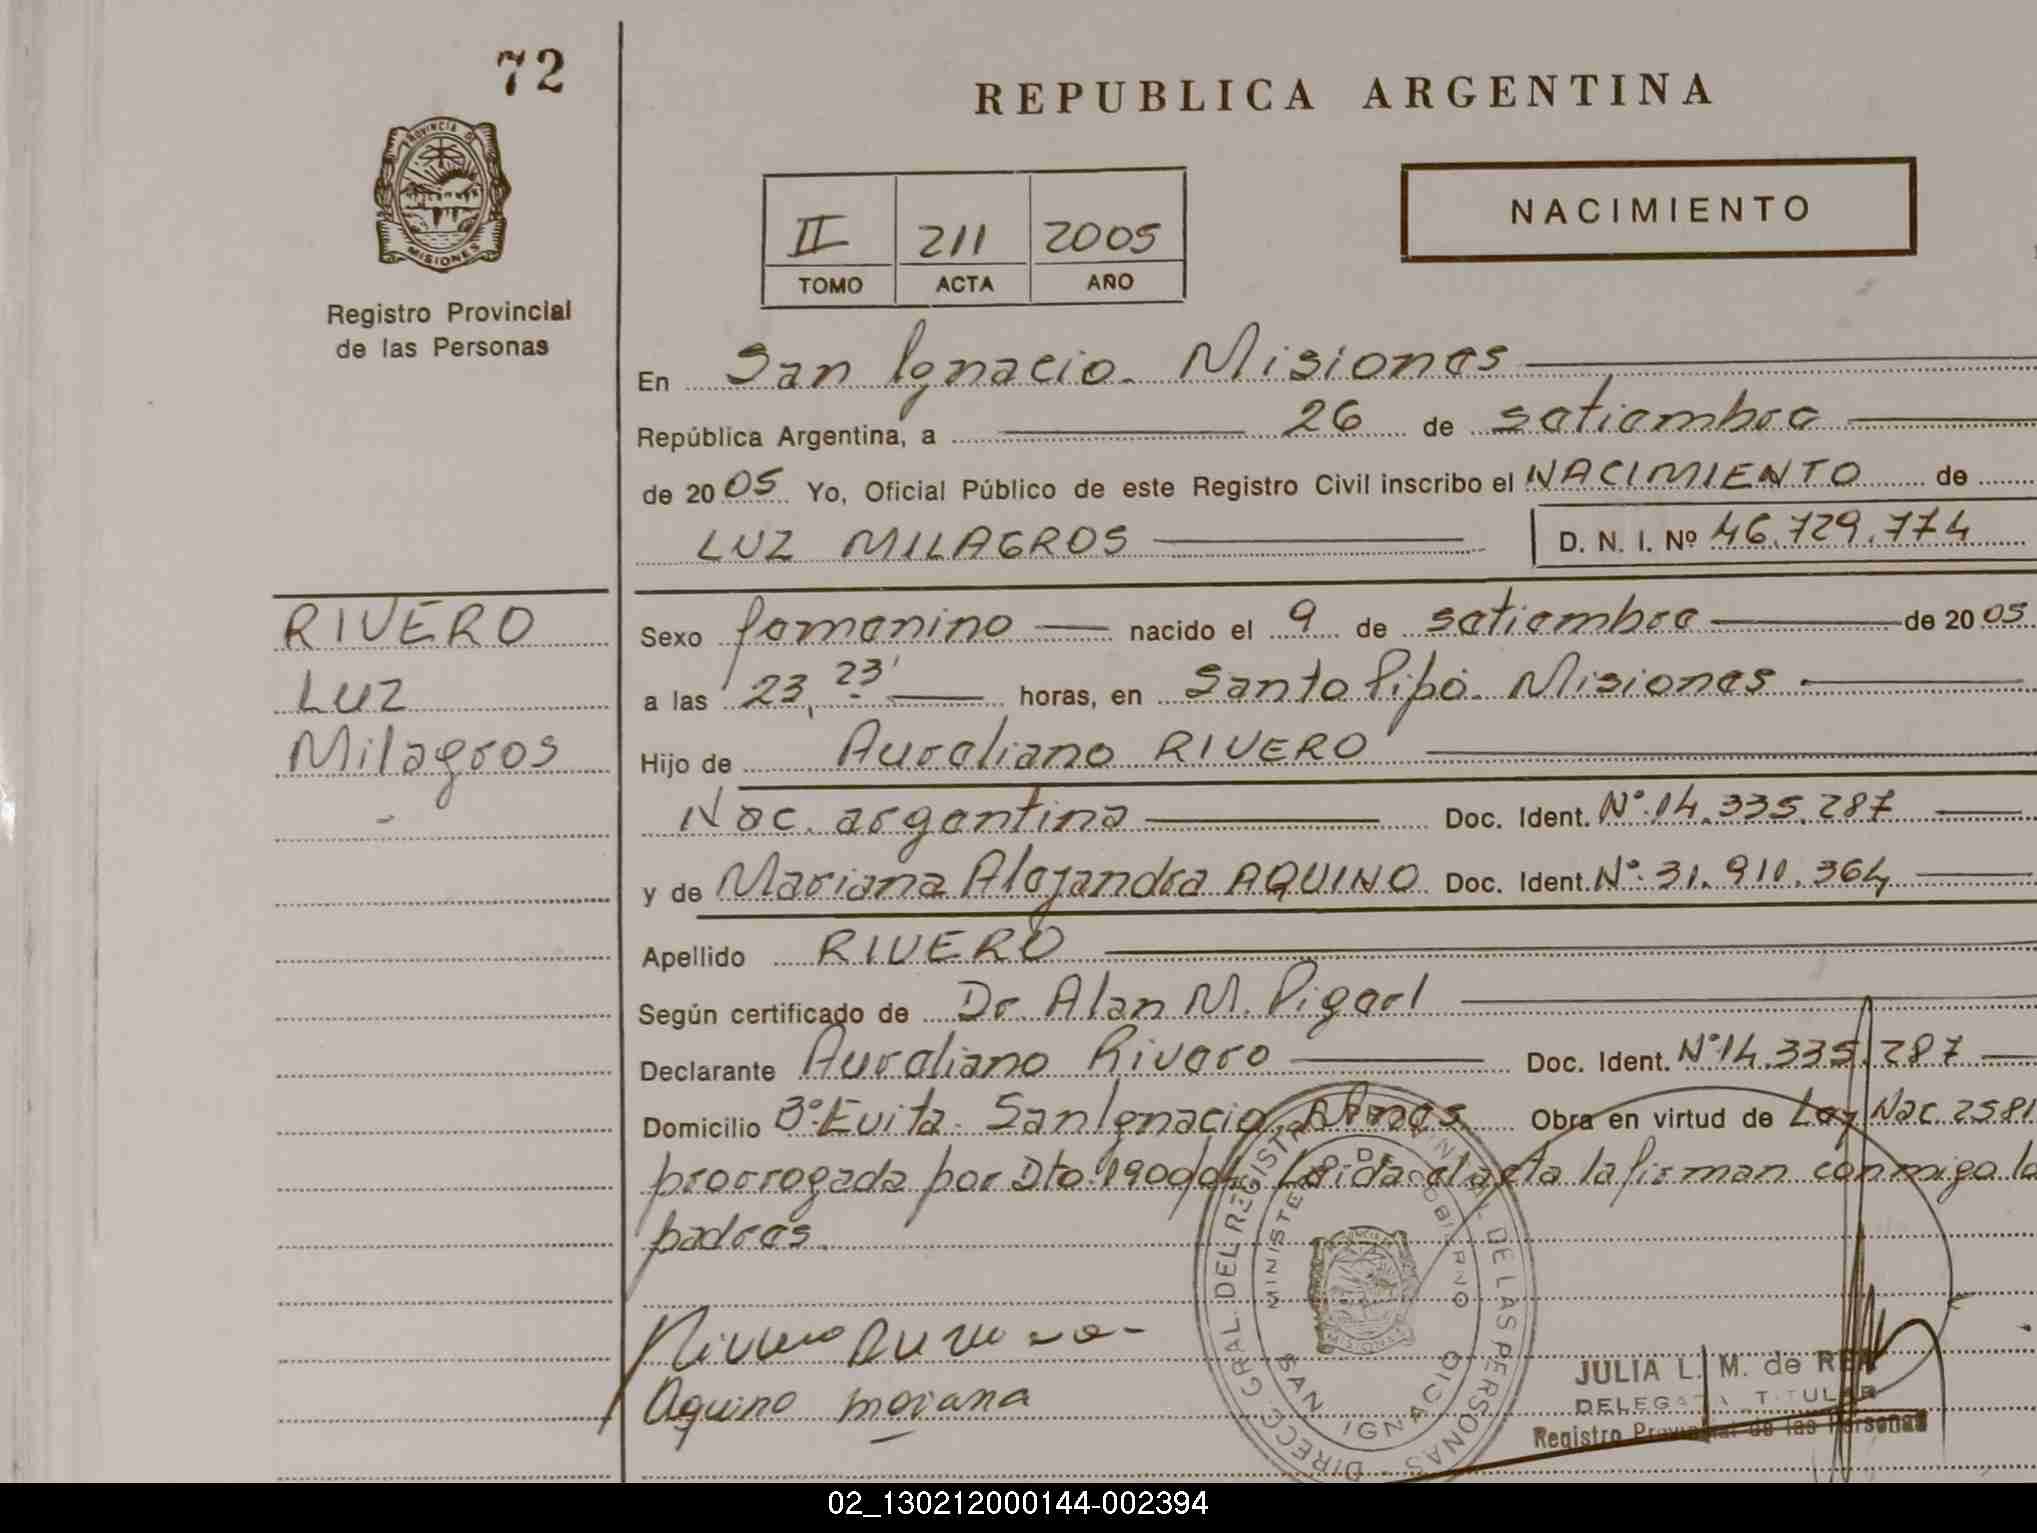 72
REPUBLICA ARGENTINA
PROVINCIA DE
MISIONES
Registro Provincial
de las Personas
II 211 2005
TOMO ACTA AÑO
NACIMIENTO
En San Ignacio. Misiones
República Argentina, a 26 de setiembre
de 2005 Yo, Oficial Público de este Registro Civil inscribo el NACIMIENTO de
LUZ MILAGROS D. N. I. Nº 46.729.774
RIVERO
Luz
Milagros
Sexo femenino nacido el 9 de setiembre de 2005
a las 23,23' horas, en Santo Pipó. Misiones
Hijo de Aureliano RIVERO
Nac. argentina Doc. Ident. Nº 14.335.287
y de Mariana Alejandra AQUINO Doc. Ident. Nº 31.910.364
Apellido RIVERO
Según certificado de Dr. Alan M.
Declarante Aureliano Rivero Doc. Ident. Nº 14.335.287
Domicilio Bº Evita. San Ignacio. Mnes. Obra en virtud de Ley Nac. 2581
prorrogada por Dto. 1900/04. Leida el acta la firman conmigo lo
padres.
Rivero
Aquino mariana
DIRECC. GRAL. DEL REGISTRO PROVINCIAL DE LAS PERSONAS
MINISTERIO DE GOBIERNO
SAN IGNACIO
JULIA L. M. de
DELEGADA TITULAR
Registro Provincial de las Personas
02_130212000144-002394